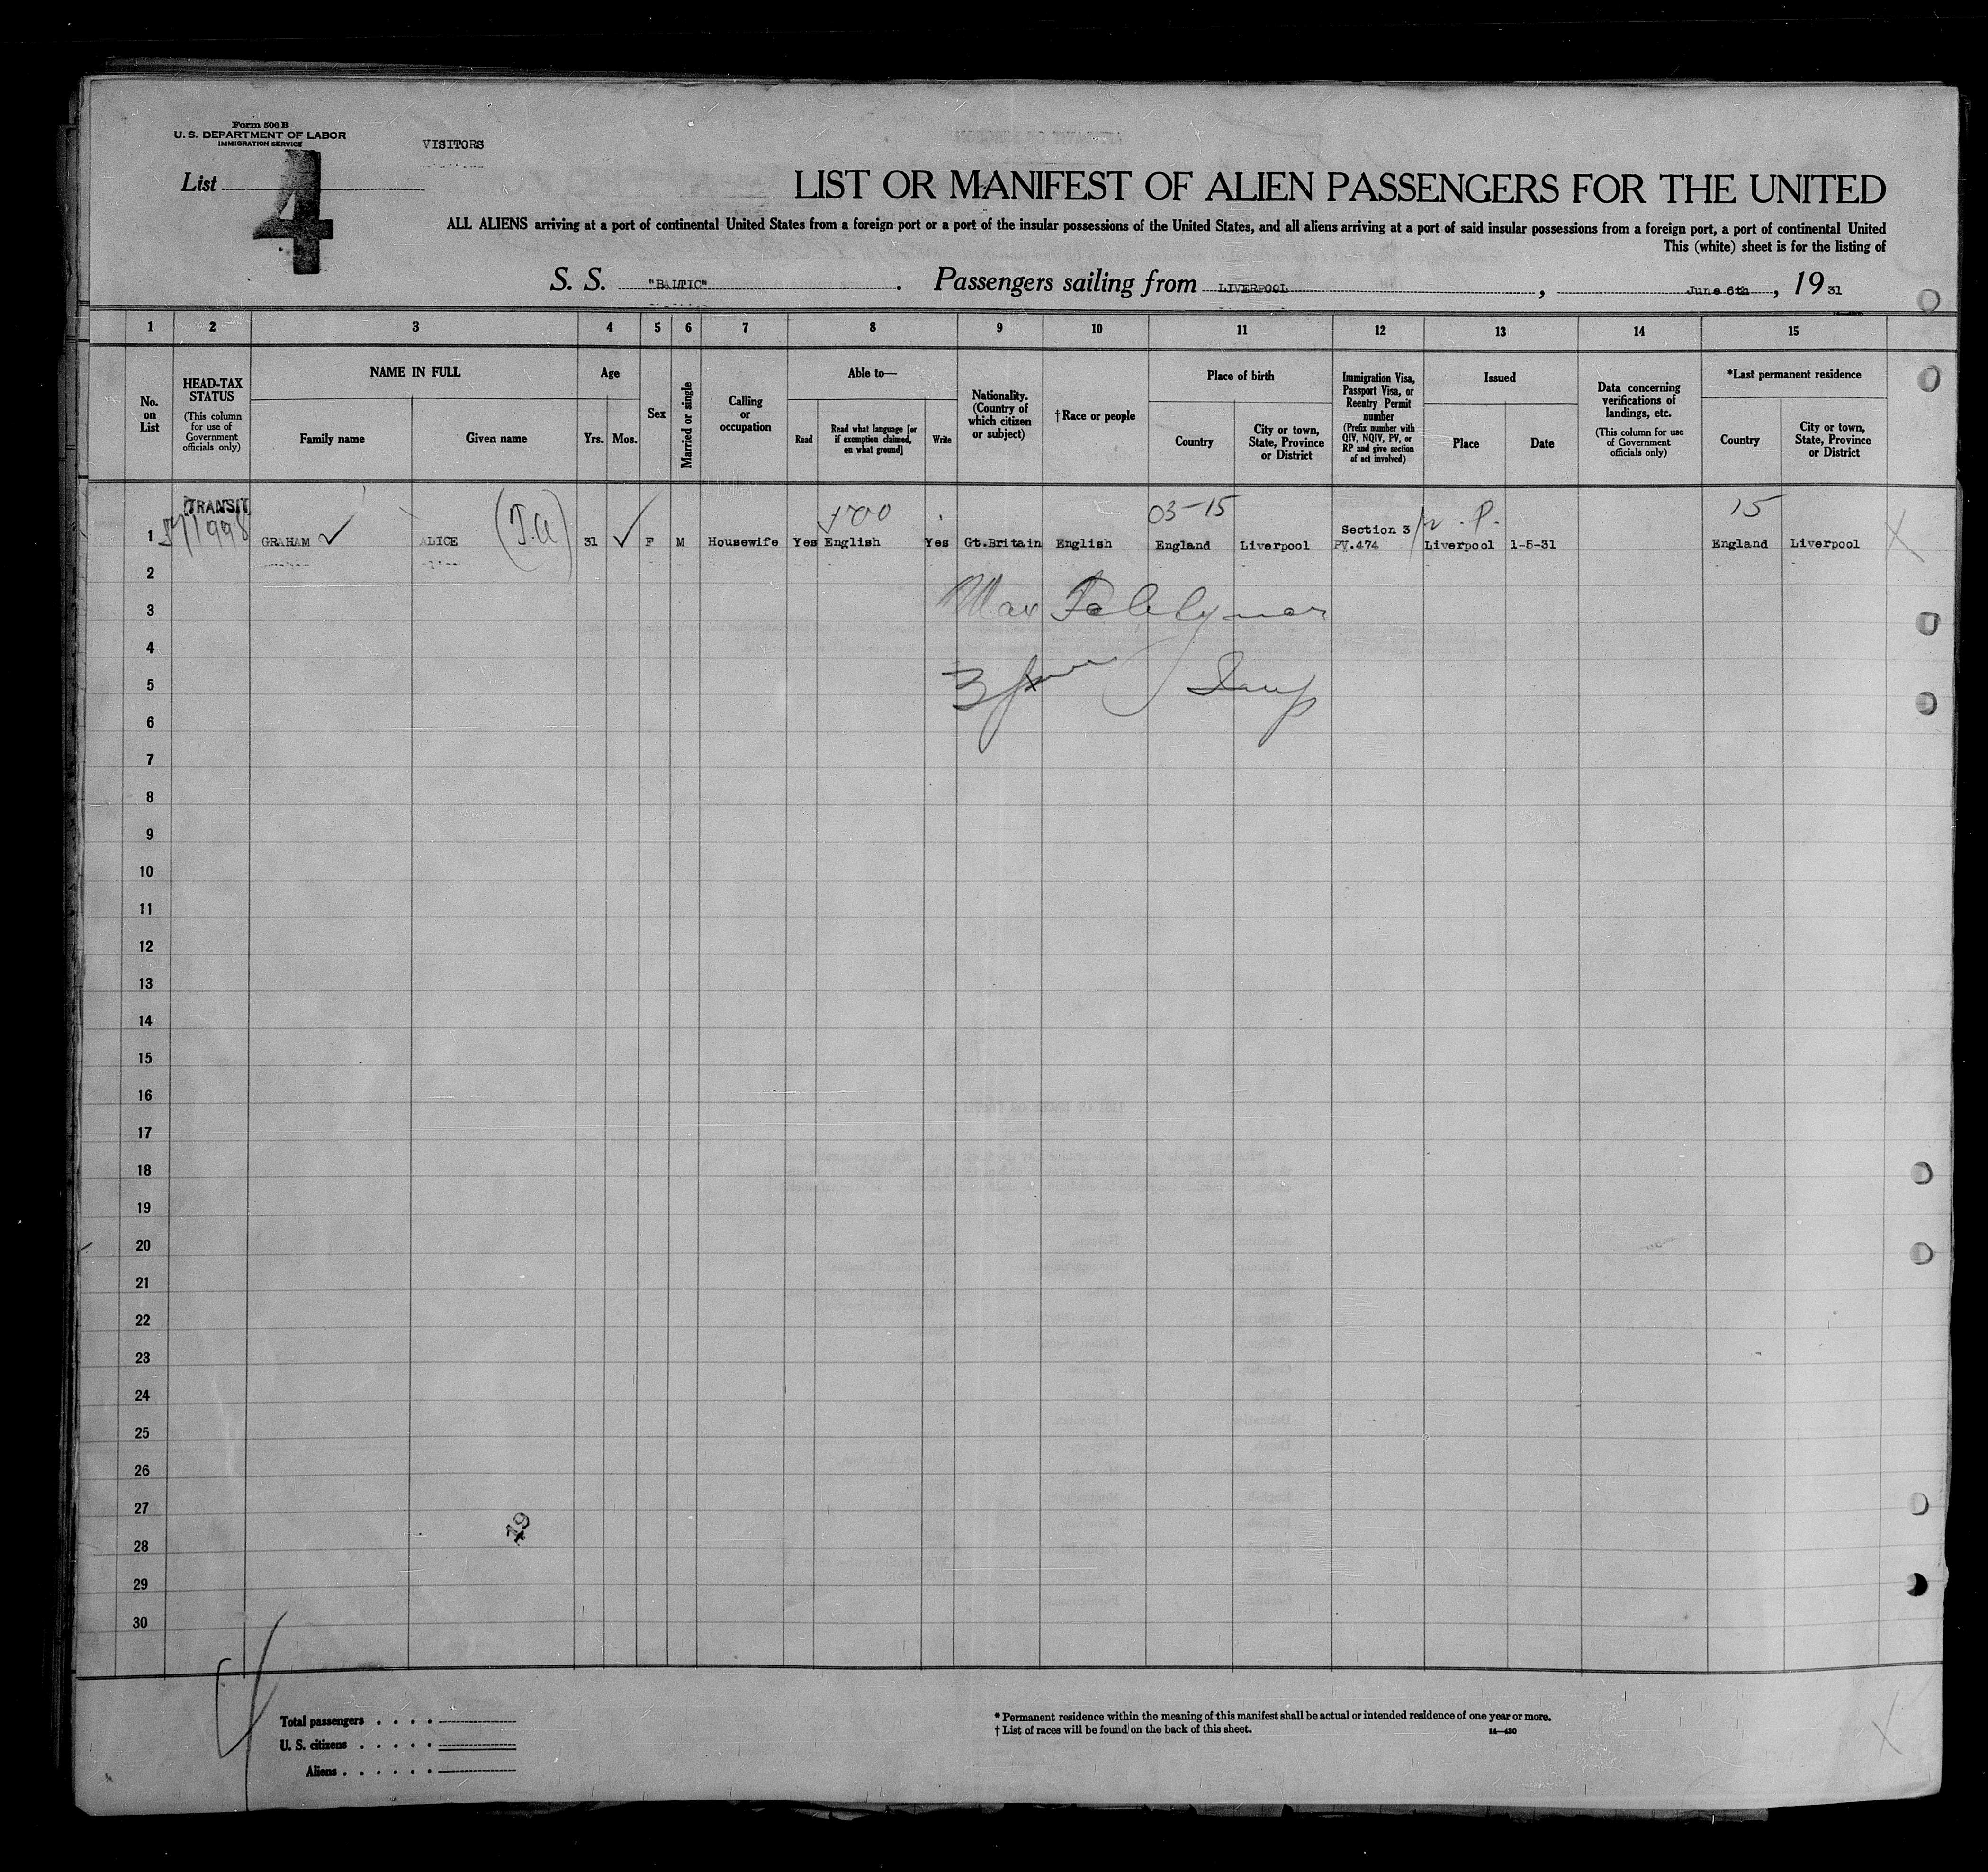 Form 500 B
U. S. DEPARTMENT OF LABOR
IMMIGRATION SERVICE
VISITORS
List 4
LIST OR MANIFEST OF ALIEN PASSENGERS FOR THE UNITED
ALL ALIENS arriving at a port of continental United States from a foreign port or a port of the insular possessions of the United States, and all aliens arriving at a port of said insular possessions from a foreign port, a port of continental United
This (white) sheet is for the listing of
S. S. "BALTIC". Passengers sailing from LIVERPOOL, June 6th, 1931
1 2 3 4 5 6 7 8 9 10 11 12 13 14 15
No. on List
HEAD-TAX STATUS
(This column for use of Government officials only)
NAME IN FULL
Family name
Given name
Age
Yrs. Mos.
Sex
Married or single
Calling or occupation
Able to—
Read
Read what language [or if exemption claimed, on what ground]
Write
Nationality. (Country of which citizen or subject)
†Race or people
Place of birth
Country
City or town, State, Province or District
Immigration Visa, Passport Visa, or Reentry Permit number
(Prefix number with QIV, NQIV, PV, or RP and give section of act involved)
Issued
Place
Date
Data concerning verifications of landings, etc.
(This column for use of Government officials only)
*Last permanent residence
Country
City or town, State, Province or District
TRANSIT
03-15
15
Section 3
1 GRAHAM ALICE 31 F M Housewife Yes English Yes Gt.Britain English England Liverpool PV.474 Liverpool 1-5-31 England Liverpool
2
3
4
5
6
7
8
9
10
11
12
13
14
15
16
17
18
19
20
21
22
23
24
25
26
27
28
29
30
19
Total passengers . . . .
U. S. citizens . . . . .
Aliens . . . . . .
* Permanent residence within the meaning of this manifest shall be actual or intended residence of one year or more.
† List of races will be found on the back of this sheet.
14—430